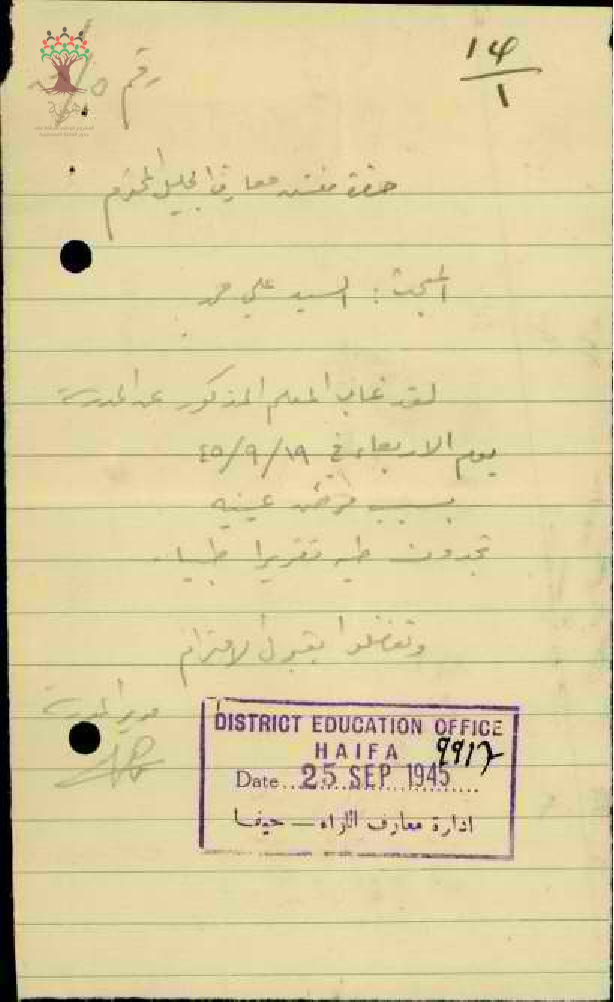 ١٤
١
رقم
حضرة مفتش معارف الجليل المحترم
المبحث : السيد علي حمد
لقد غاب المعلم المذكور عن المدرسة
يوم الاربعاء في ١٩/٩/٤٥
بسبب مرض عينيه
تجدون طيه تقريرا طبيا .
وتفضلوا بقبول الاحترام
مدير المدرسة
DISTRICT EDUCATION OFFICE
HAIFA
Date 25 SEP 1945
ادارة معارف اللواء — حيفا